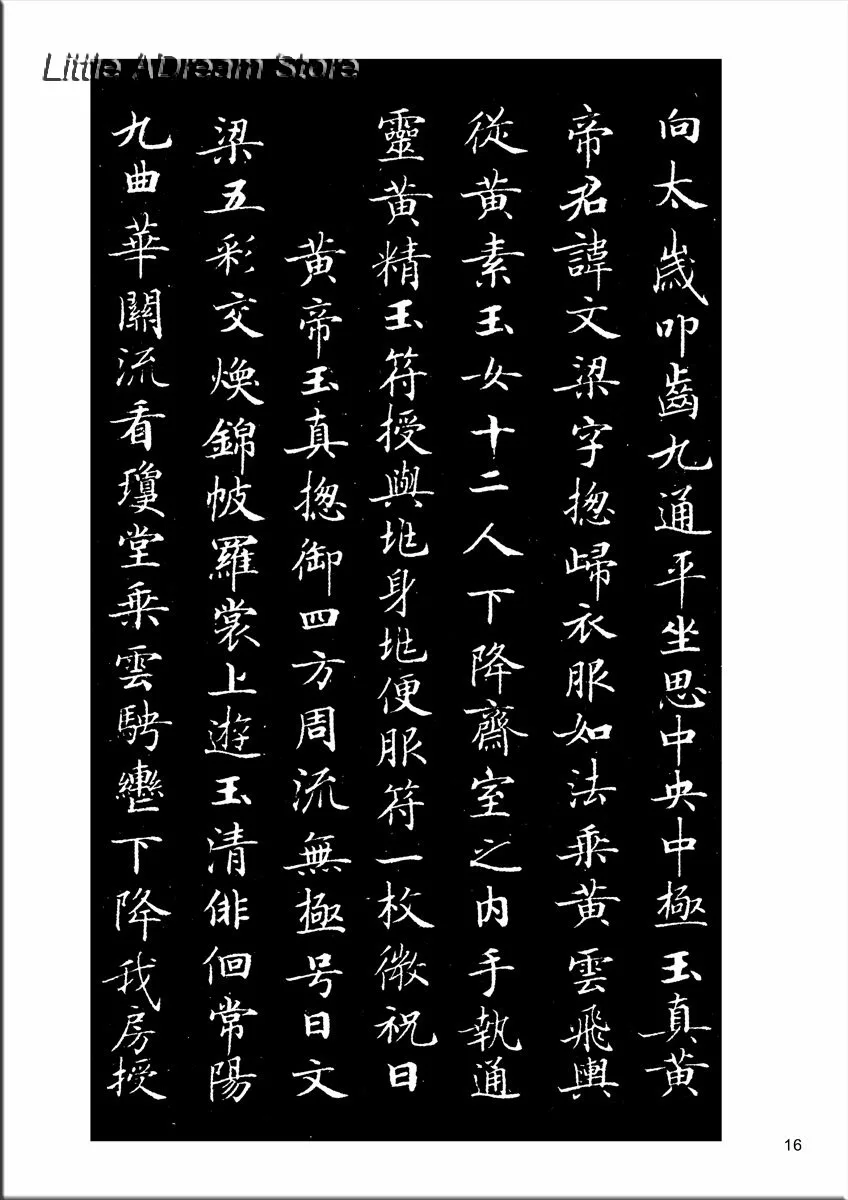 Little ADream Store
向太歲叩齒九通平坐思中央中極玉真黃
帝君諱文梁字揔歸衣服如法乘黃雲飛輿
從黃素玉女十二人下降齋室之內手執通
靈黃精玉符授與地身地便服符一枚微祝曰
黃帝玉真揔御四方周流無極号曰文
梁五彩交煥錦帔羅裳上遊玉清俳佪常陽
九曲華關流看瓊堂乘雲騁轡下降我房授
16